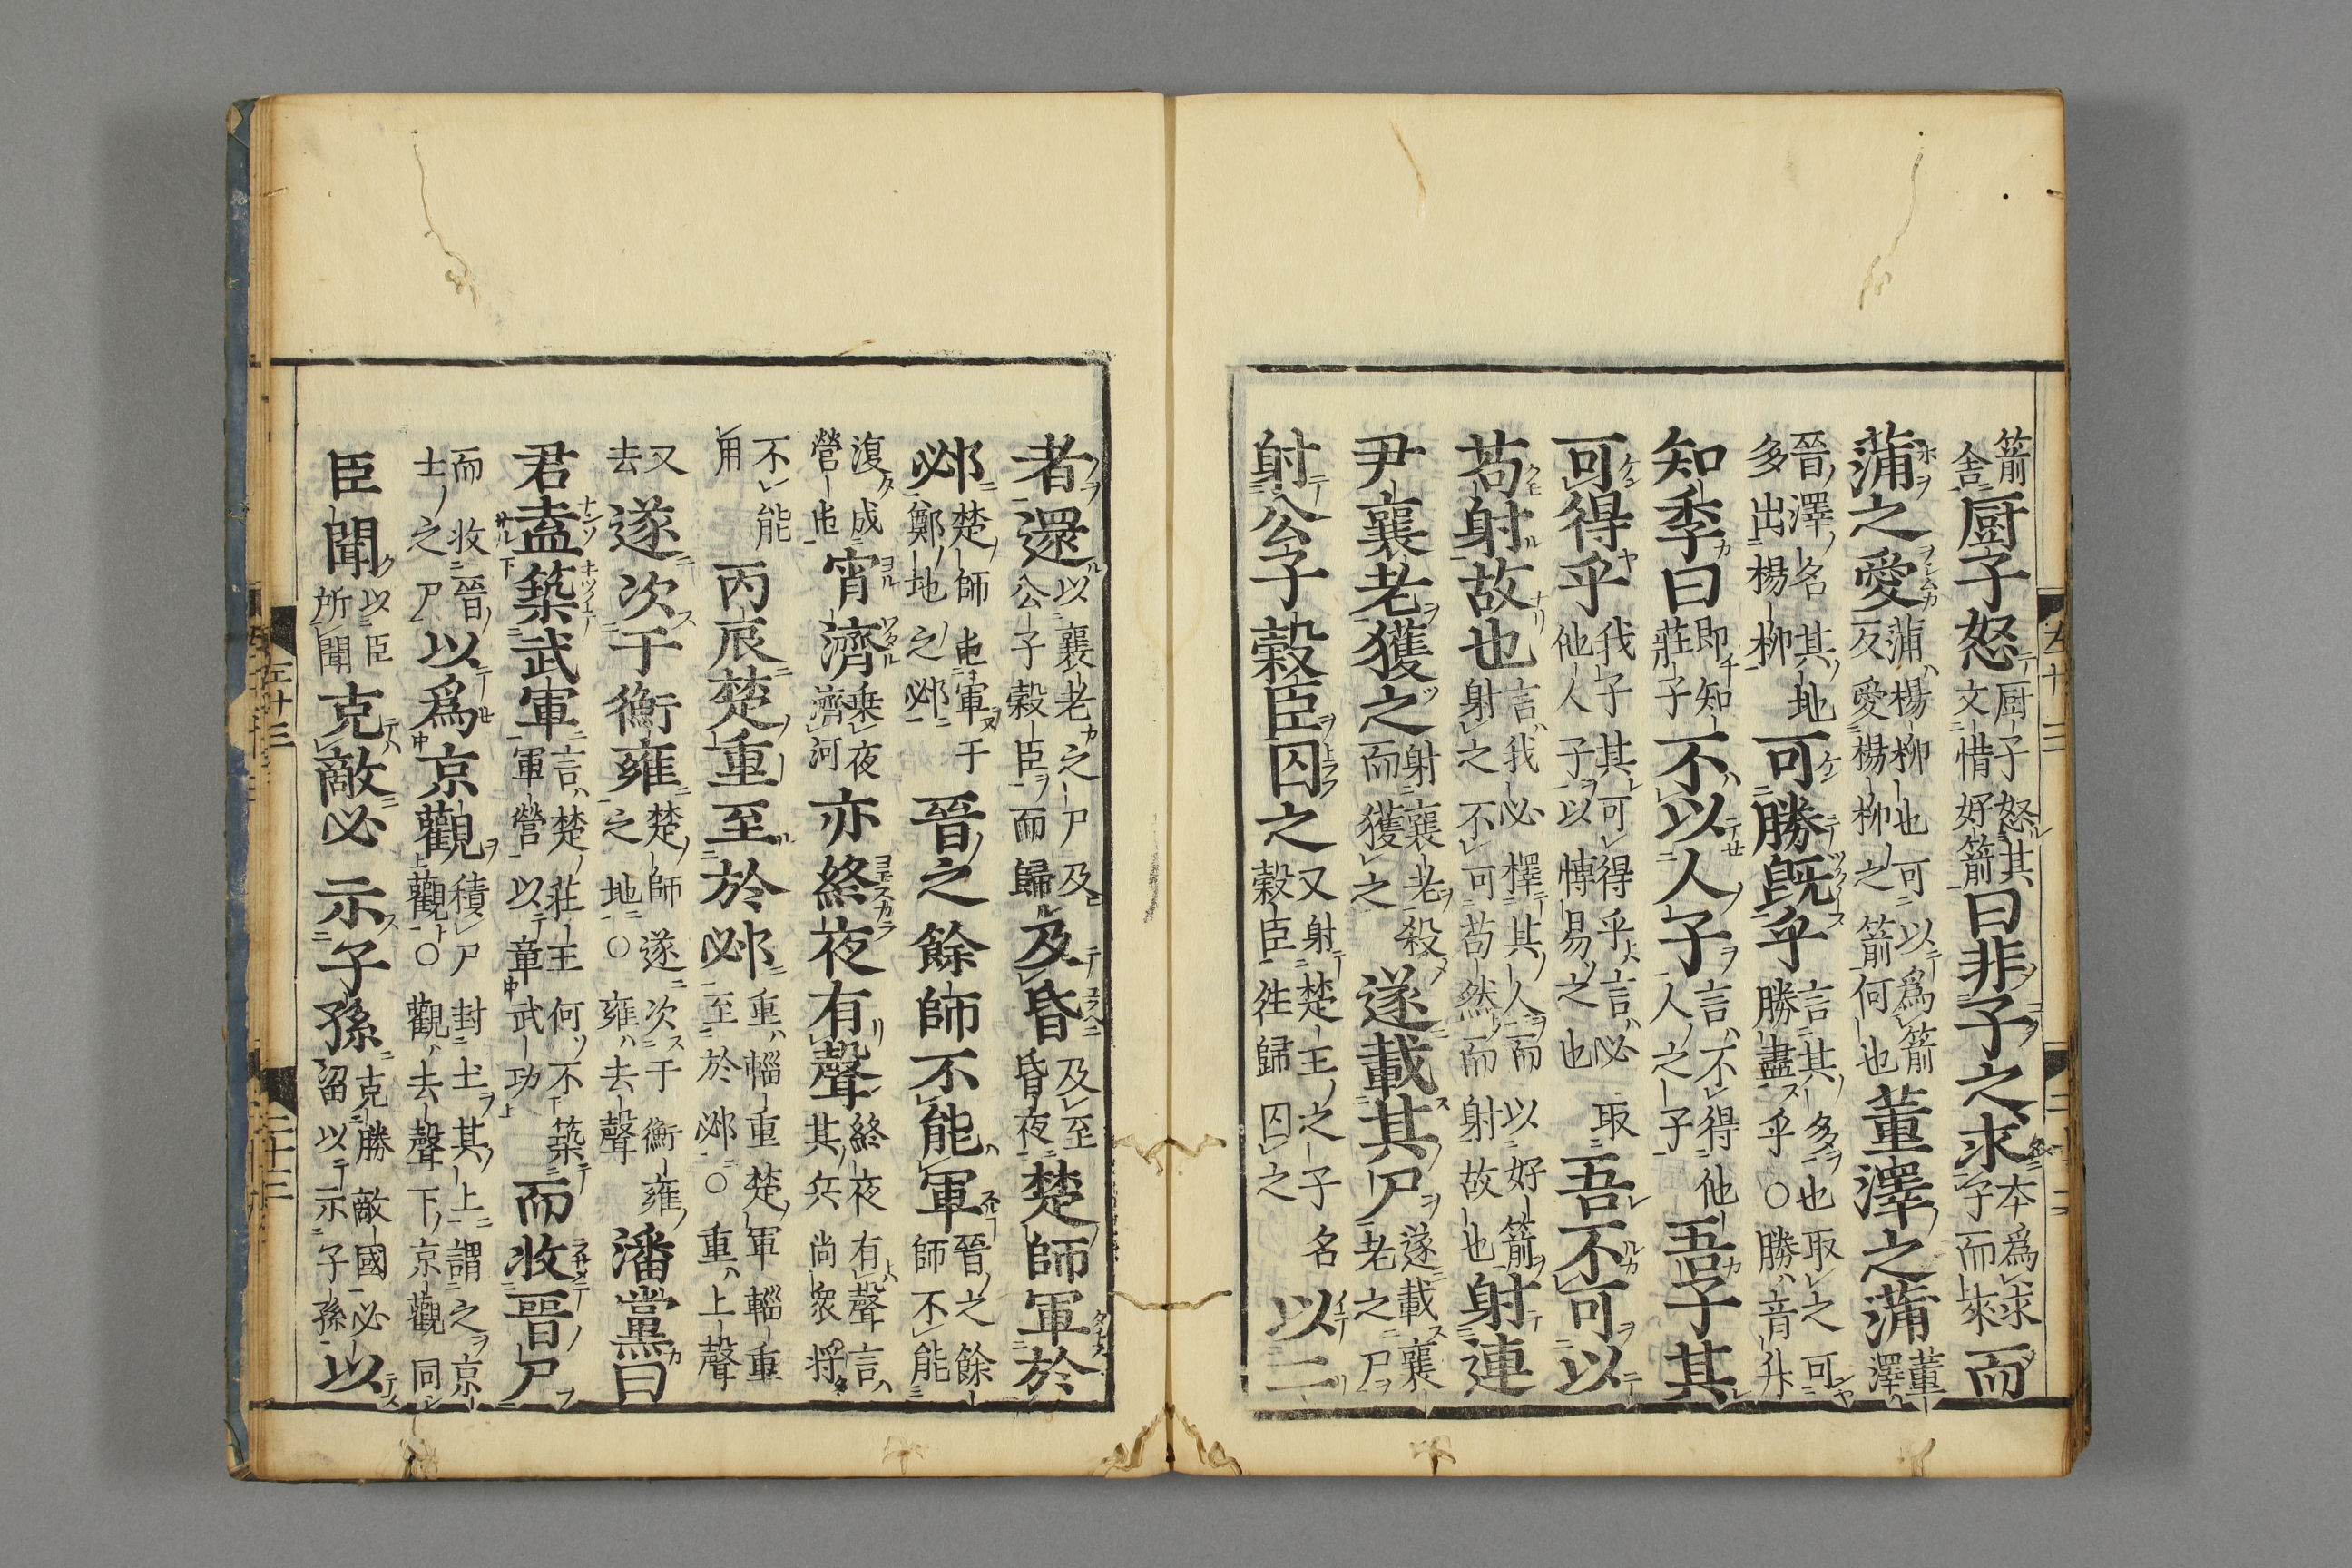 箭舍厨子怒厨子怒其文惜好箭曰非子之求本爲求子而來而
蒲之愛蒲楊柳也可以爲箭反愛楊柳之箭何也董澤之蒲董澤
晉澤名其地多出楊柳可勝旣乎言其多也取之可勝盡乎○勝音升
知季曰即知莊子不以人子言不得他人之子吾子其
可得乎我子其可得乎言必他人子以愽易之也取吾不可以
苟射故也言我必擇其人而以好箭射之不可苟然而射故也射連
尹襄老獲之射襄老殺而獲之遂載其尸遂載襄老之尸
射公子穀臣囚之又射楚王之子名穀臣徃歸囚之以二
者還以襄老之尸及公子穀臣而歸及昏及至昏夜楚師軍於
邲楚師屯軍于鄭地之邲晉之餘師不能軍晉之餘師不能
復成營屯宵濟乗夜濟河亦終夜有聲終夜有聲言其兵尚衆将
不能用丙辰楚重至於邲重輜重楚軍輜重至於邲○重上聲
又去遂次于衡雍楚師遂次于衡雍之地○雍去聲潘黨曰
君盍築武軍言楚莊王何不築軍營以章武功而收晉尸
而收晉士之尸以爲京觀積尸封土其上謂之京觀○觀去聲下京觀同
臣聞以臣所聞克敵必示子孫克勝敵國必留以示子孫以